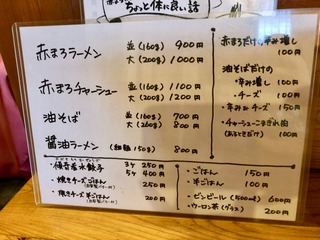 ちょっと体に良い話
赤まろラーメン 並(160g) 900円
大(200g) 1000円
赤まろチャーシュー 並(160g) 1100円
大(200g) 1200円
油そば 並(160g) 700円
大(260g) 800円
醤油ラーメン (細麺150g) 800円
赤まろだけの辛み増し
100円
油そばだけの
・辛み増し 100円
・チーズ 100円
・辛み+チーズ 150円
・チャーシューこまぎれ肉
(あるときだけ) 100円
水餃子 3ケ 250円
5ケ 400円
・焼きチーズごはん
250円
・焼きチーズ
200円
・ごはん 150円
・半ごはん 100円
・ビンビール(500ml) 600円
・ウーロン茶(グラス) 200円